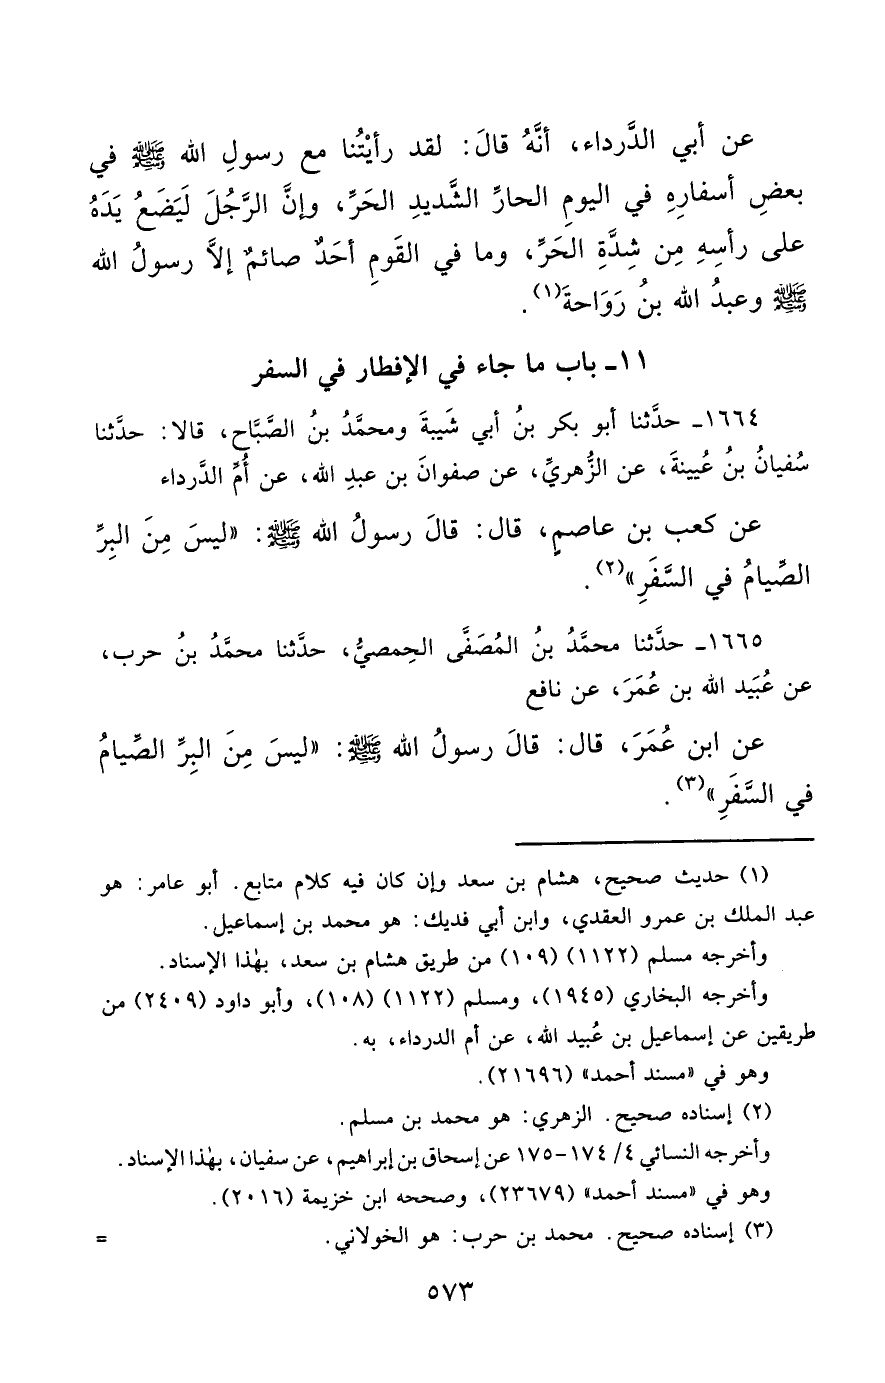 عن أبي الدَّرداء، أنَّهُ قالَ: لقد رأيْتُنا مع رسولِ الله ﷺ في
بعضِ أسفارِهِ في اليومِ الحارِّ الشَّديدِ الحَرِّ، وإنَّ الرَّجُلَ لَيَضَعُ يَدَهُ
على رأسِهِ مِن شِدَّةِ الحَرِّ، وما في القَومِ أحَدٌ صائمٌ إلاَّ رسولُ الله
ﷺ وعبدُ الله بنُ رَوَاحةَ(١).
١١ـ باب ما جاء في الإفطار في السفر
١٦٦٤ـ حدَّثنا أبو بكر بنُ أبي شَيبةَ ومحمَّدُ بنُ الصَّبَّاح، قالا: حدَّثنا
سُفيانُ بنُ عُيينةَ، عن الزُّهريِّ، عن صفوانَ بن عبدِ الله، عن أُمِّ الدَّرداء
عن كعب بن عاصمٍ، قال: قالَ رسولُ الله ﷺ: «ليسَ مِنَ البِرِّ
الصِّيامُ في السَّفَرِ»(٢).
١٦٦٥ـ حدَّثنا محمَّدُ بنُ المُصَفَّى الحِمصيُّ، حدَّثنا محمَّدُ بنُ حرب،
عن عُبَيد الله بن عُمَرَ، عن نافع
عن ابن عُمَرَ، قال: قالَ رسولُ الله ﷺ: «ليسَ مِنَ البِرِّ الصِّيامُ
في السَّفَرِ»(٣).
(١) حديث صحيح، هشام بن سعد وإن كان فيه كلام متابع. أبو عامر: هو
عبد الملك بن عمرو العقدي، وابن أبي فديك: هو محمد بن إسماعيل.
وأخرجه مسلم (١١٢٢) (١٠٩) من طريق هشام بن سعد، بهٰذا الإسناد.
وأخرجه البخاري (١٩٤٥)، ومسلم (١١٢٢) (١٠٨)، وأبو داود (٢٤٠٩) من
طريقين عن إسماعيل بن عُبيد الله، عن أم الدرداء، به.
وهو في «مسند أحمد» (٢١٦٩٦).
(٢) إسناده صحيح. الزهري: هو محمد بن مسلم.
وأخرجه النسائي ٤/ ١٧٤-١٧٥ عن إسحاق بن إبراهيم، عن سفيان، بهٰذا الإسناد.
وهو في «مسند أحمد» (٢٣٦٧٩)، وصححه ابن خزيمة (٢٠١٦).
(٣) إسناده صحيح. محمد بن حرب: هو الخولاني. =
٥٧٣